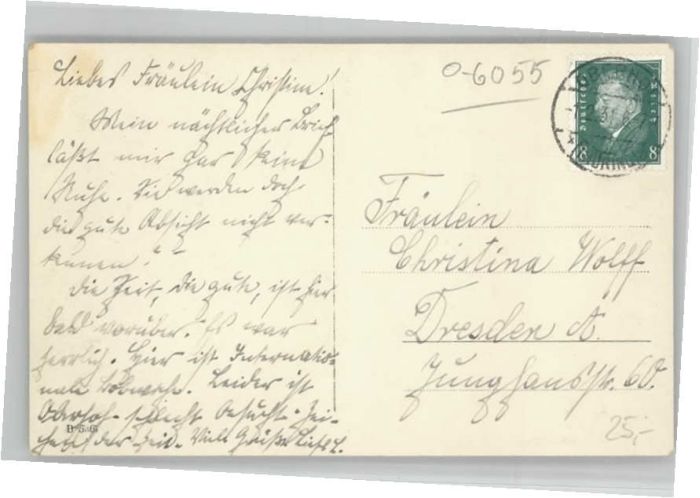 Liebes Fräulein Christine!
Mein nächtlicher Brief
läßt mir gar keine
Ruhe. Sie werden doch
die gute Absicht nicht ver-
kennen!
Die Zeit, die gute, ist hier
bald vorüber. Es war
herrlich. Hier ist Internatio-
nale Bobwoche. Leider ist
Oberhof schlecht besucht. Zei-
chen der Zeit. Viele Grüße
B 546
0-6055
Deutsches Reich
8 8
Fräulein
Christina Wolff
Dresden A.
Junghansstr. 60.
25,-